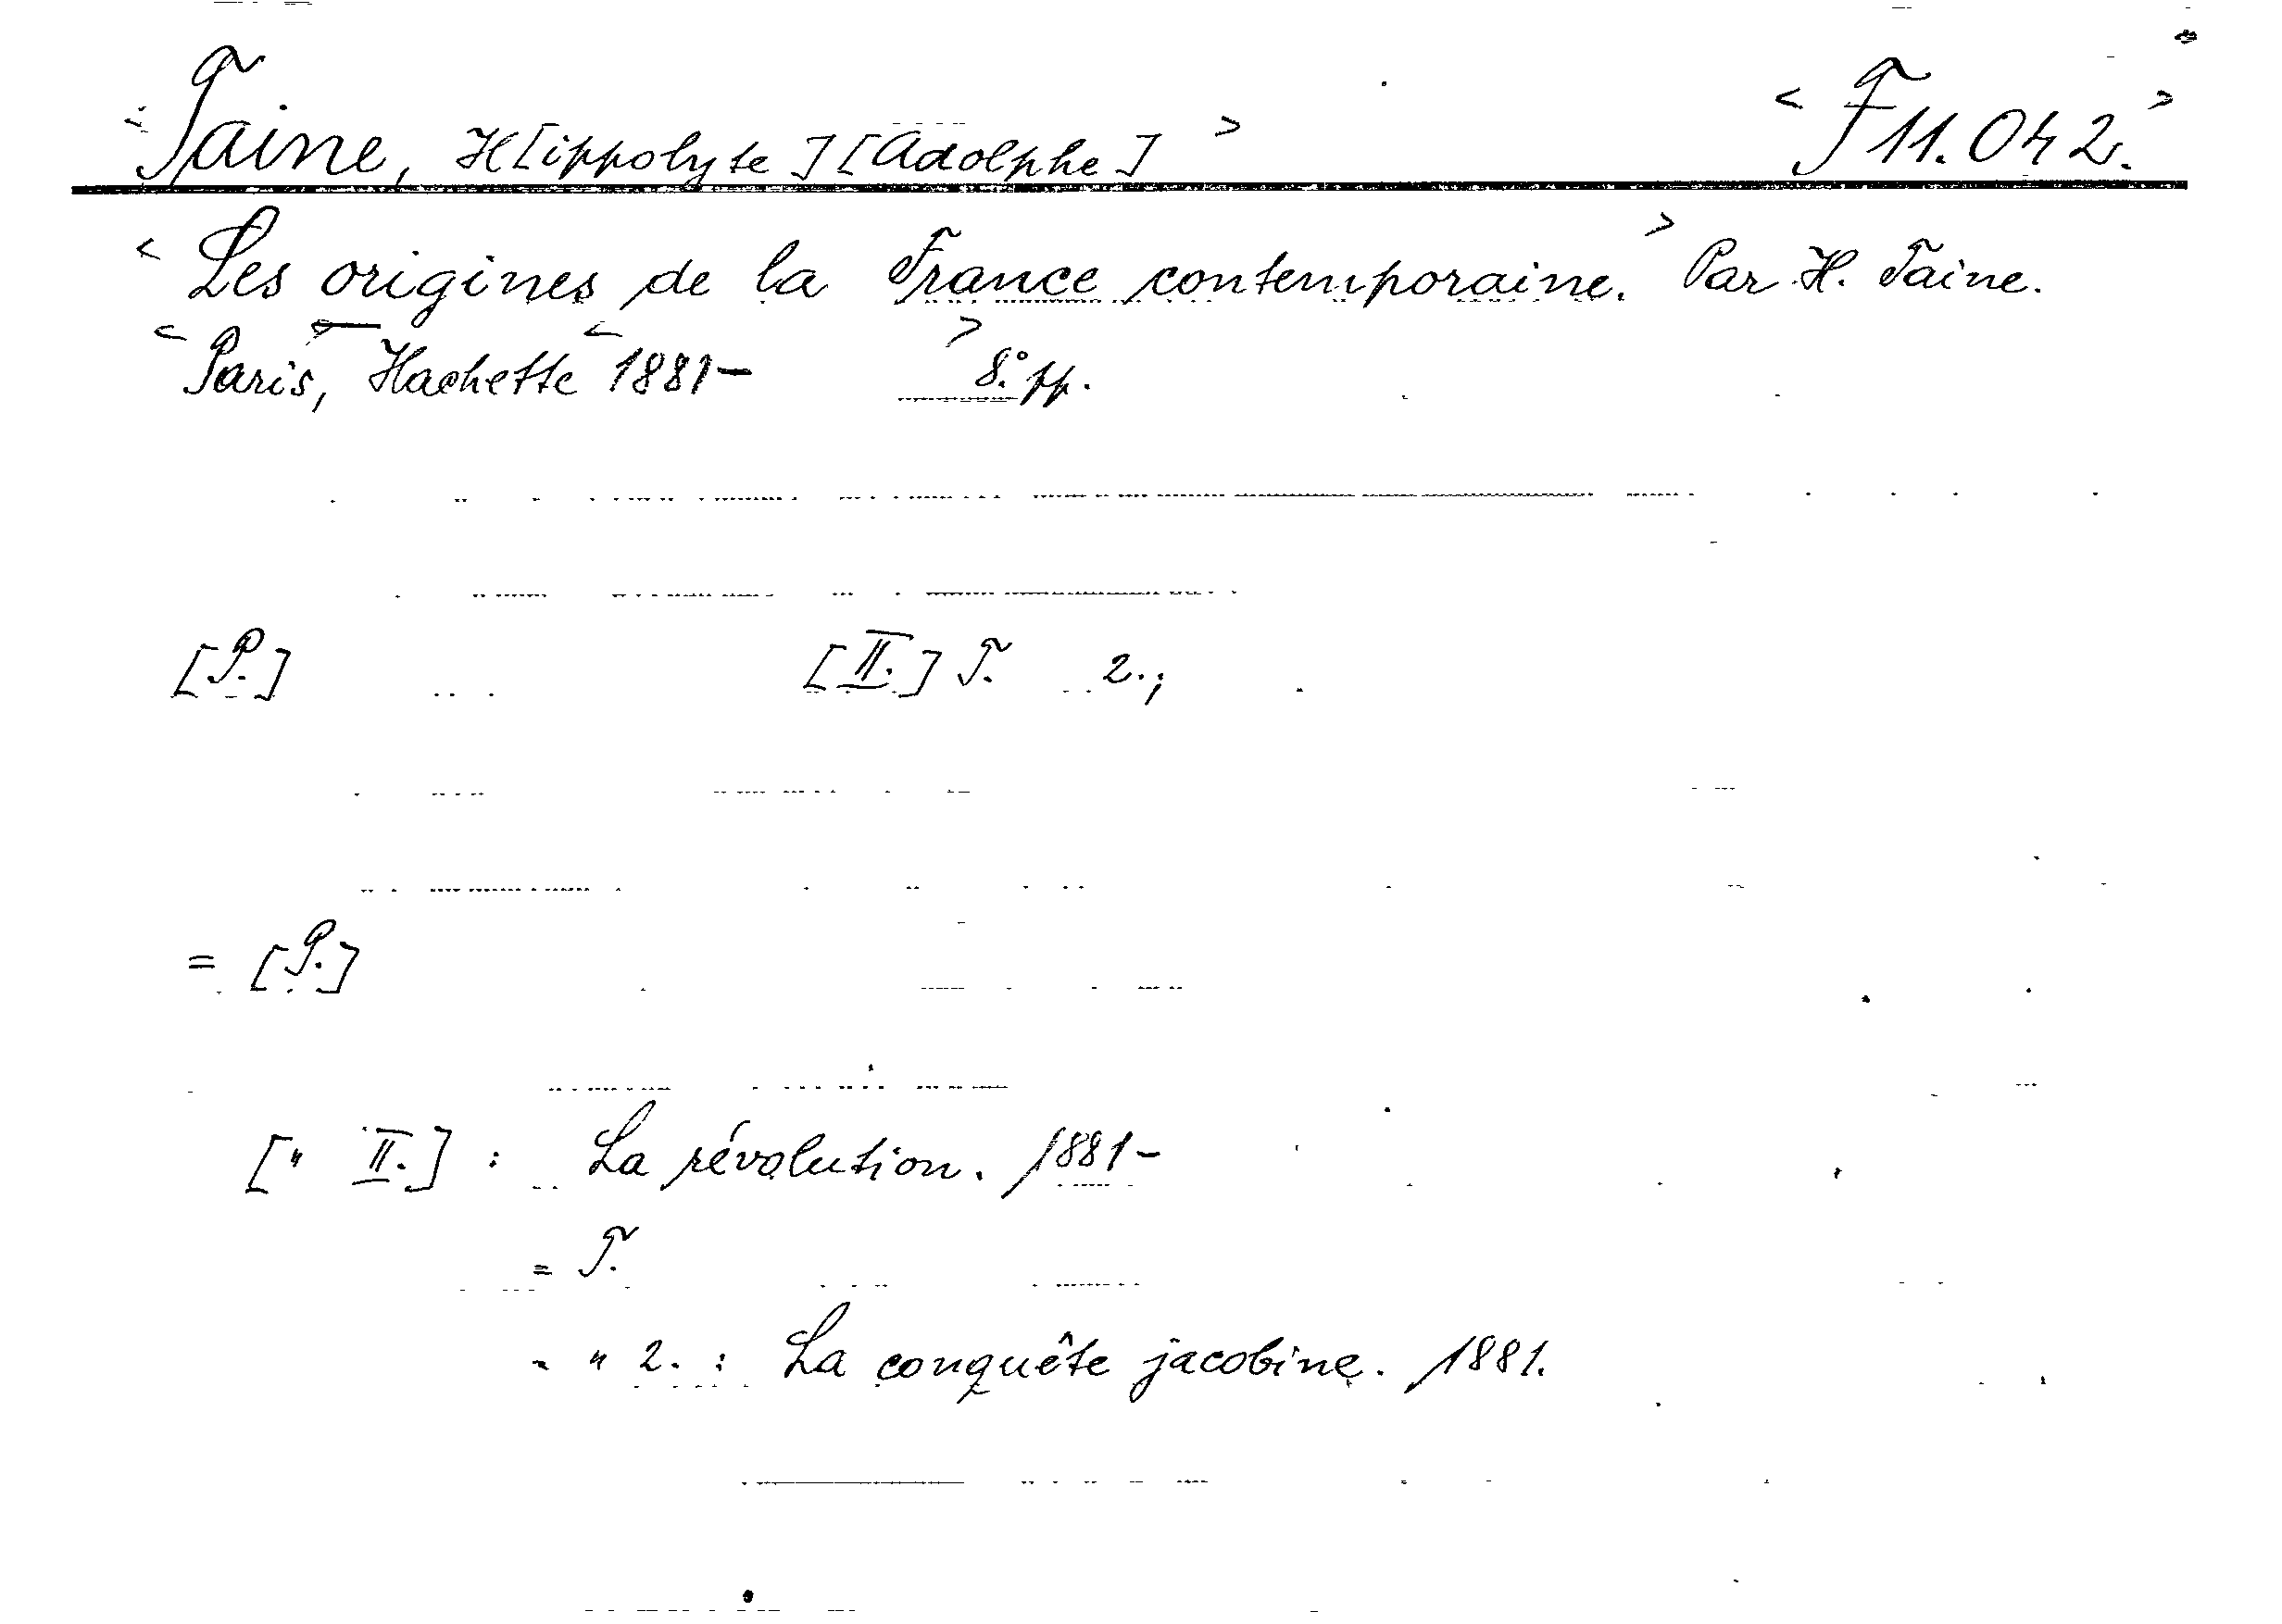 < Taine, H[ippolyte] [Adolphe] > < F 11.042. >
< Les origines de la France contemporaine. > Par H. Taine.
< Paris, Hachette < 1881- > 8° pp.
[P.] [II.] T. 2.;
= [P.]
[" II.] : La révolution. 1881-
= T.
= " 2. : La conquête jacobine. 1881.